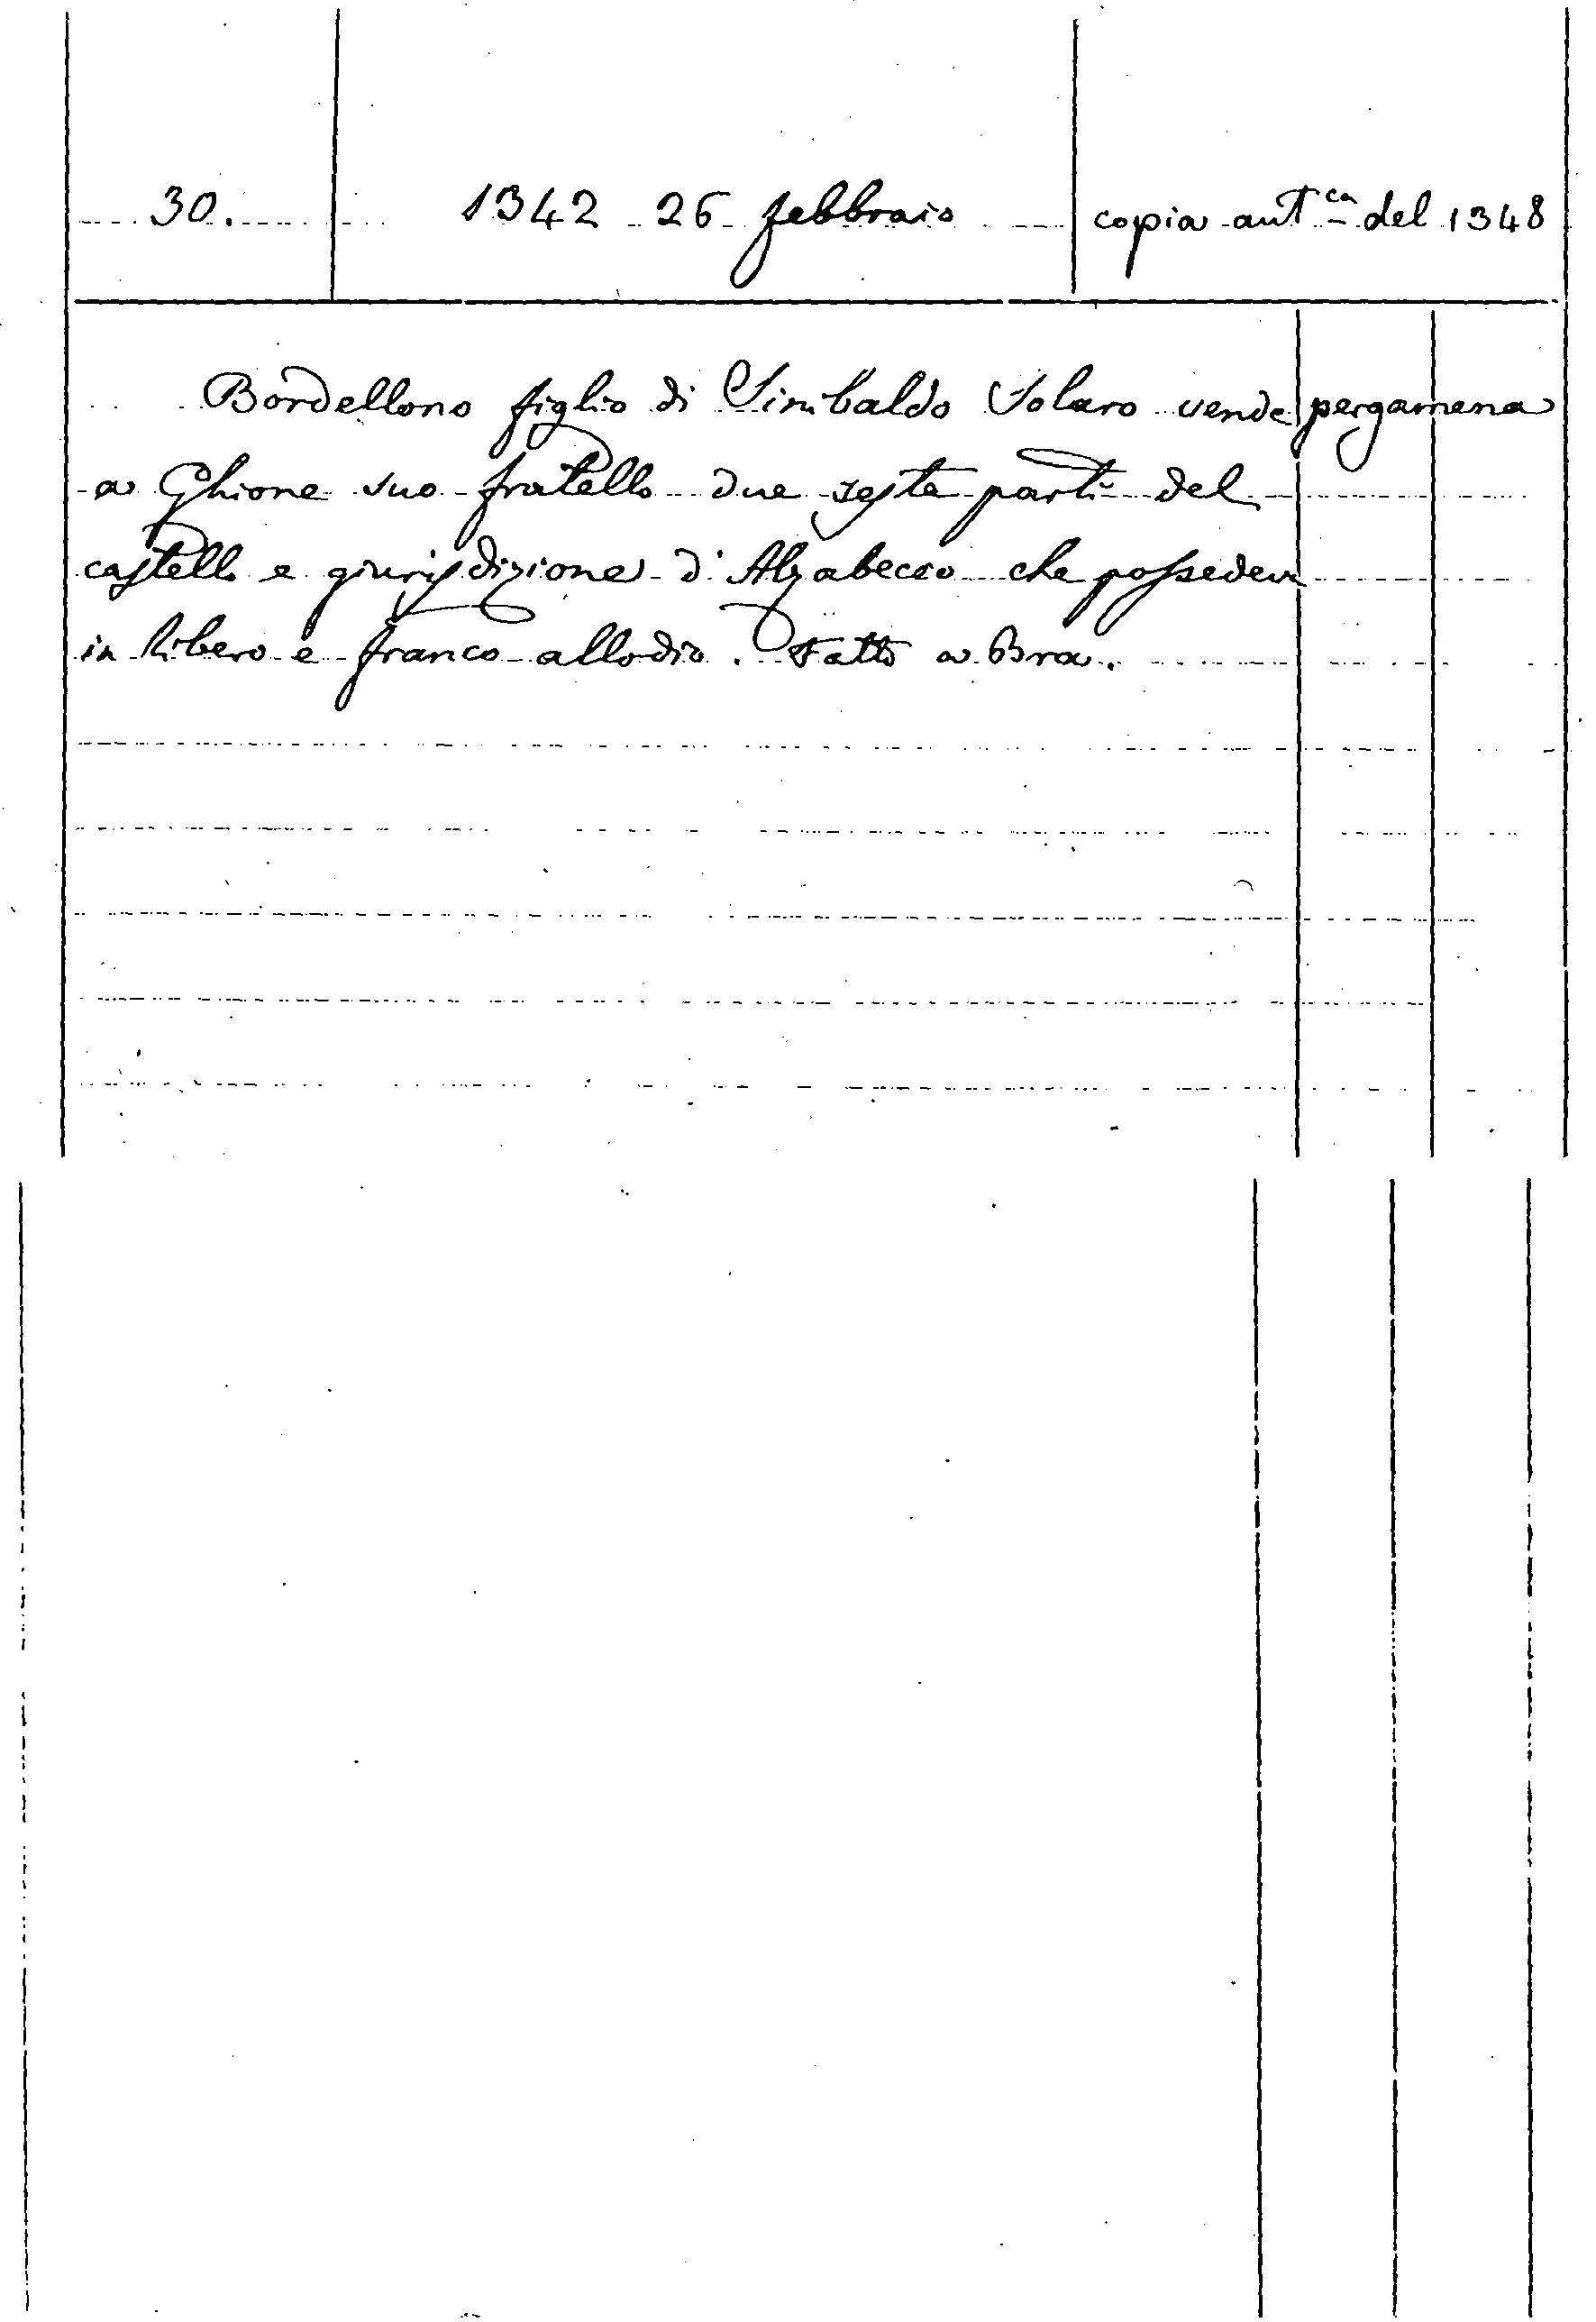 30. 1342 26 febbraio copia aut.ca del 1348
Bordellono figlio di Sinibaldo Solaro vende pergamena
a Ghione suo fratello due seste parti del
castello e giurisdizione d'Alzabecco che possedeva
in libero e franco allodio. Fatto a Bra.